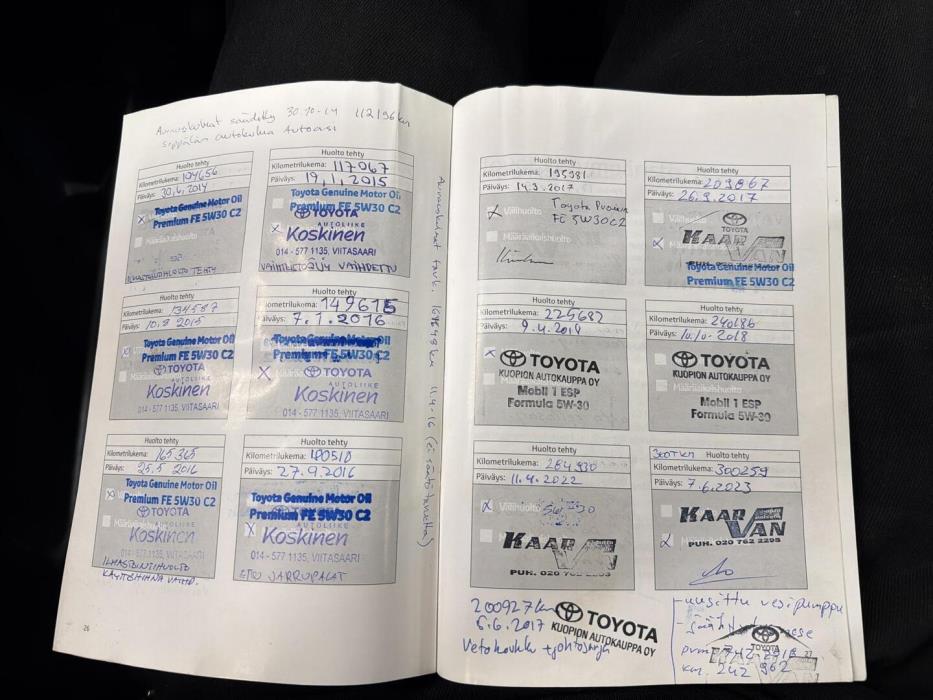 30.10-14 112196km
Sippolan autokulma Autoasi
Huolto tehty
Kilometrilukema: 104656
Päiväys: 30.6.2014
Toyota Genuine Motor Oil
Premium FE 5W30 C2
Määräaikaishuolto
ILMASTOINTIHUOLTO TEHTY
Huolto tehty
Kilometrilukema: 117067
Päiväys: 19.1.2015
Toyota Genuine Motor Oil
Premium FE 5W30 C2
TOYOTA
AUTOLIIKE
Koskinen
014 - 577 1135, VIITASAARI
VAIHTEISTOÖLJY VAIHDETTU
Huolto tehty
Kilometrilukema: 134587
Päiväys: 10.8 2015
Toyota Genuine Motor Oil
Premium FE 5W30 C2
TOYOTA
AUTOLIIKE
Koskinen
014 - 577 1135, VIITASAARI
Huolto tehty
Kilometrilukema: 149615
Päiväys: 7.1.2016
Toyota Genuine Motor Oil
Premium FE 5W30 C2
TOYOTA
AUTOLIIKE
Koskinen
014 - 577 1135, VIITASAARI
Huolto tehty
Kilometrilukema: 165365
Päiväys: 25.5 2016
Toyota Genuine Motor Oil
Premium FE 5W30 C2
TOYOTA
AUTOLIIKE
Koskinen
014 - 577 1135, VIITASAARI
ILMASTOINTIHUOLTO
KÄYTTÖHIHNA VAIHD.
Huolto tehty
Kilometrilukema: 180510
Päiväys: 27.9.2016
Toyota Genuine Motor Oil
Premium FE 5W30 C2
AUTOLIIKE
Koskinen
014 - 577 1135, VIITASAARI
ETU JARRUPALAT
26
11.4-16 (ei säätötarvetta)
Huolto tehty
Kilometrilukema: 195981
Päiväys: 14.3.2017
Välihuolto
Toyota Premium
FE 5W30 C2
Määräaikaishuolto
Huolto tehty
Kilometrilukema: 209867
Päiväys: 26.9.2017
TOYOTA
KAARVAN
Toyota Genuine Motor Oil
Premium FE 5W30 C2
Huolto tehty
Kilometrilukema: 225682
Päiväys: 9.4.2018
TOYOTA
KUOPION AUTOKAUPPA OY
Mobil 1 ESP
Formula 5W-30
Huolto tehty
Kilometrilukema: 240186
Päiväys: 10.10-2018
TOYOTA
KUOPION AUTOKAUPPA OY
Määräaikaishuolto
Mobil 1 ESP
Formula 5W-30
Huolto tehty
Kilometrilukema: 284930
Päiväys: 11.4.2022
Välihuolto
5W30
KAARVAN
300TKM Huolto tehty
Kilometrilukema: 300259
Päiväys: 7.6.2023
KAARVAN
PUH. 020 762 2295
200927km
6.6.2017
Vetokoukku + johtosarja
TOYOTA
KUOPION AUTOKAUPPA OY
- uusittu vesipumppu
TOYOTA
km. 242 962
27